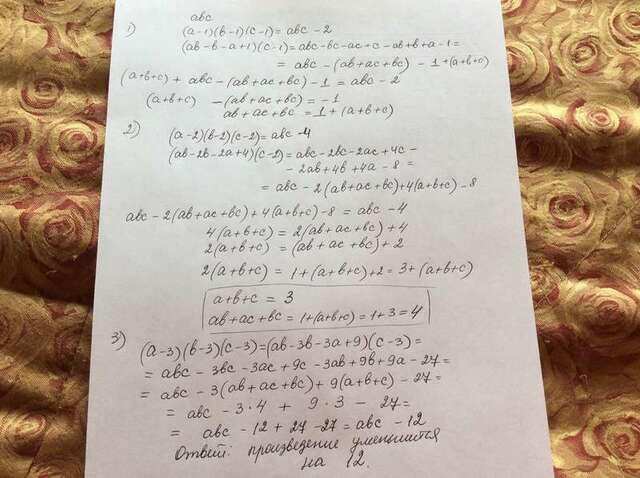 abc
1) (a-1)(b-1)(c-1) = abc - 2
(ab-b-a+1)(c-1) = abc-bc-ac+c-ab+b+a-1=
= abc - (ab+ac+bc) - 1 + (a+b+c)
(a+b+c) + abc - (ab+ac+bc) - 1 = abc - 2
(a+b+c) - (ab+ac+bc) = -1
ab+ac+bc = 1 + (a+b+c)
2) (a-2)(b-2)(c-2) = abc -4
(ab-2b-2a+4)(c-2) = abc-2bc-2ac+4c-
-2ab+4b+4a-8=
= abc - 2(ab+ac+bc)+4(a+b+c)-8
abc - 2(ab+ac+bc)+4(a+b+c)-8 = abc-4
4(a+b+c) = 2(ab+ac+bc)+4
2(a+b+c) = (ab+ac+bc)+2
2(a+b+c) = 1+(a+b+c)+2 = 3+(a+b+c)
a+b+c = 3
ab+ac+bc = 1+(a+b+c) = 1+3 = 4
3) (a-3)(b-3)(c-3)=(ab-3b-3a+9)(c-3)=
= abc - 3bc - 3ac + 9c - 3ab + 9b + 9a - 27 =
= abc - 3(ab+ac+bc) + 9(a+b+c) - 27 =
= abc - 3·4 + 9·3 - 27 =
= abc - 12 + 27 - 27 = abc - 12
Ответ: произведение уменьшится
на 12.